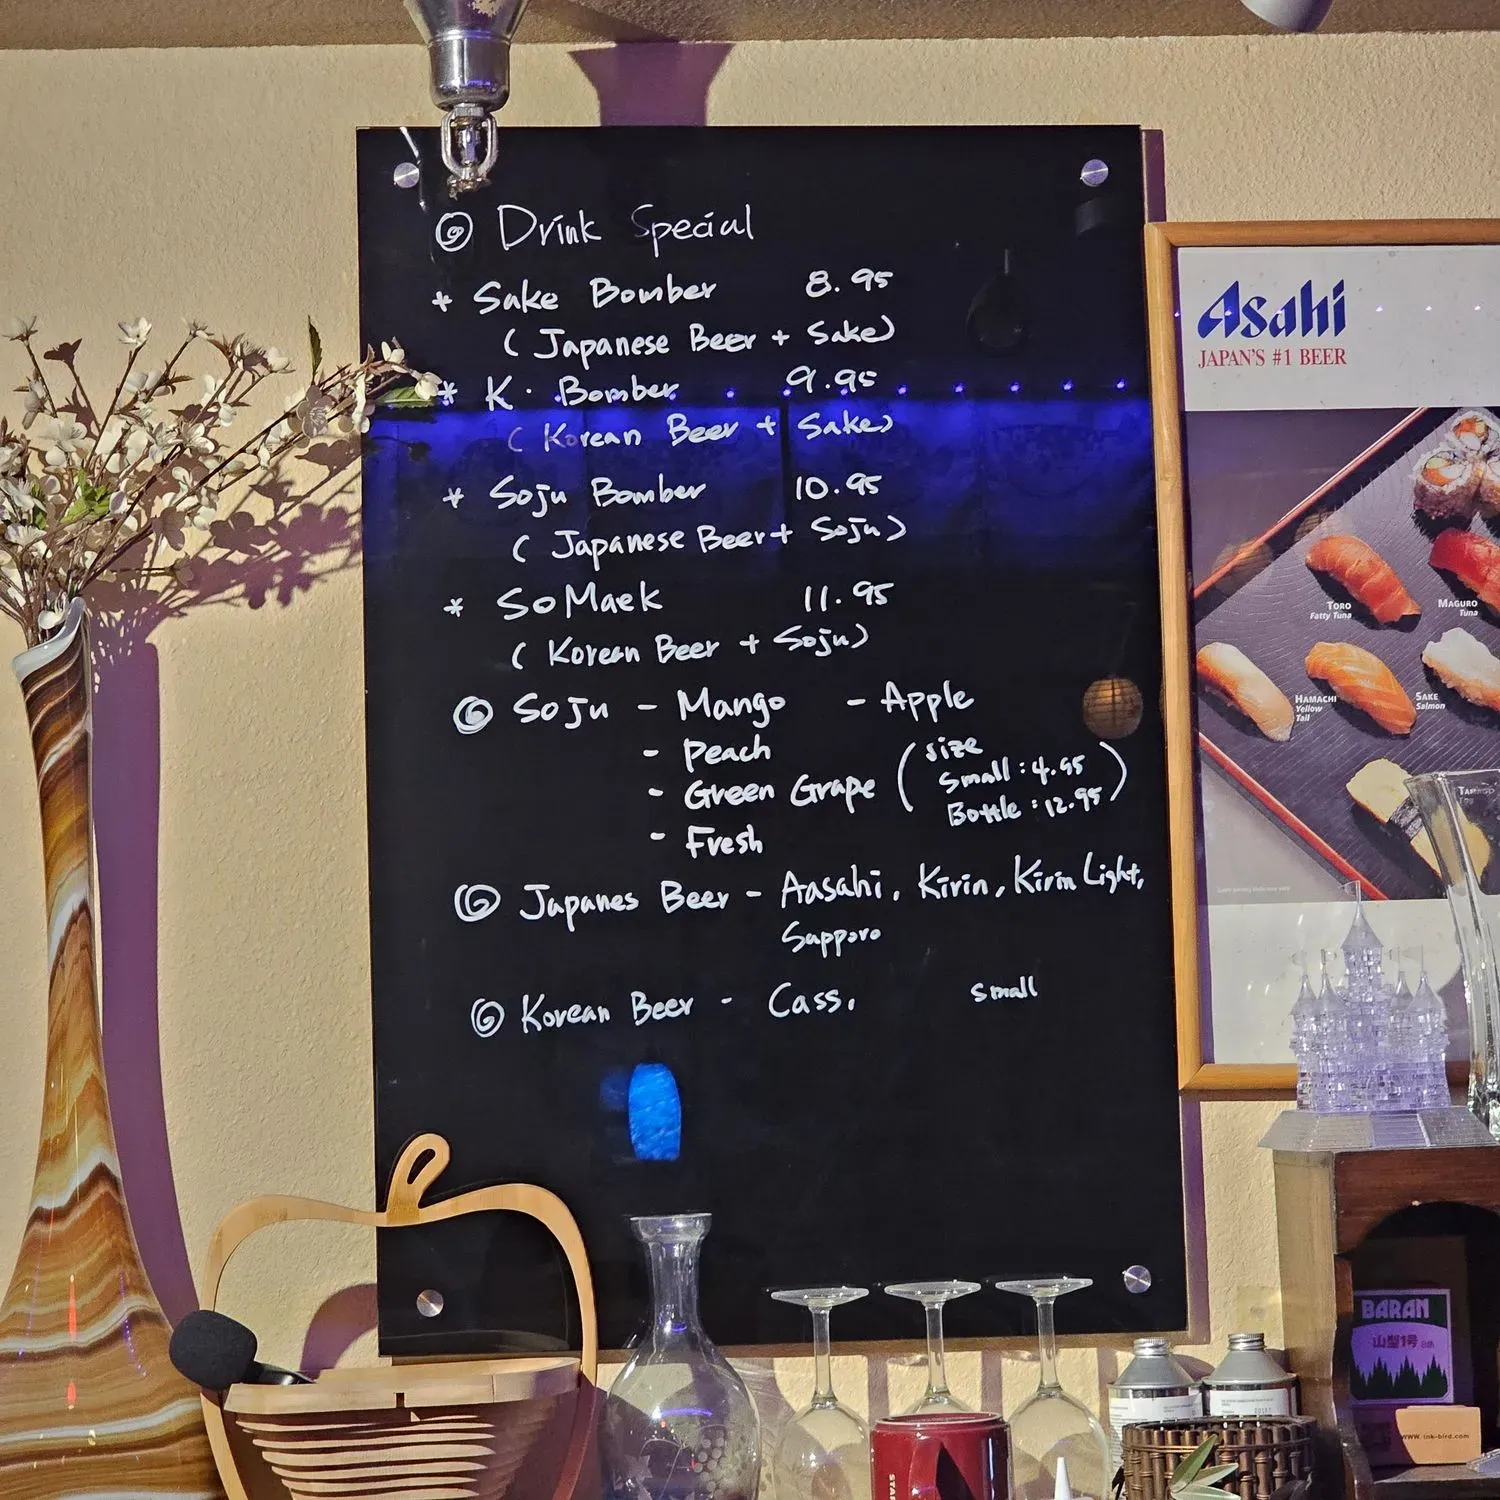 Drink Special
* Sake Bomber 8.95
(Japanese Beer + Sake)
* K. Bomber 9.95
(Korean Beer + Sake)
* Soju Bomber 10.95
(Japanese Beer + Soju)
* SoMaek 11.95
(Korean Beer + Soju)
Soju - Mango - Apple
- Peach
- Green Grape
- Fresh
(size
Small: 4.95
Bottle: 12.95)
Japanes Beer - Aasahi, Kirin, Kirin Light,
Sapporo
Korean Beer - Cass. small
Asahi
JAPAN'S #1 BEER
TORO
Fatty Tuna
MAGURO
Tuna
HAMACHI
Yellow
Tail
SAKE
Salmon
BARAN
山型1号
www.ink-bird.com